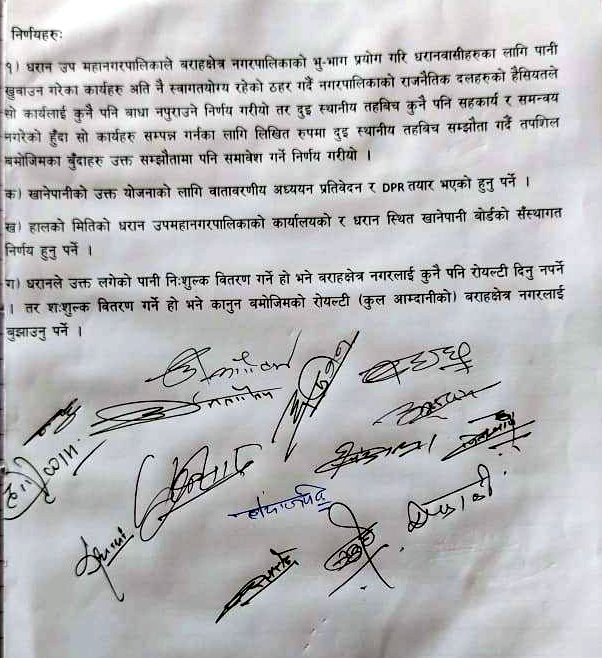 निर्णयहरु:
१) धरान उप महानगरपालिकाले बराहक्षेत्र नगरपालिकाको भु-भाग प्रयोग गरि धरानवासीहरुका लागि पानी
खुवाउन गरेका कार्यहरु अति नै स्वागतयोग्य रहेको ठहर गर्दै नगरपालिकाको राजनैतिक दलहरुको हैसियतले
सो कार्यलाई कुनै पनि बाधा नपुराउने निर्णय गरीयो तर दुइ स्थानीय तहबिच कुनै पनि सहकार्य र समन्वय
नगरेको हुँदा सो कार्यहरु सम्पन्न गर्नका लागि लिखित रुपमा दुइ स्थानीय तहबिच सम्झौता गर्दै तपशिल
बमोजिमका बुँदाहरु उक्त सम्झौतामा पनि समावेश गर्ने निर्णय गरीयो ।
क) खानेपानीको उक्त योजनाको लागि वातावरणीय अध्ययन प्रतिवेदन र DPR तयार भएको हुनु पर्ने ।
ख) हालको मितिको धरान उपमहानगरपालिकाको कार्यालयको र धरान स्थित खानेपानी बोर्डको सँस्थागत
निर्णय हुनु पर्ने ।
ग) धरानले उक्त लगेको पानी निःशुल्क वितरण गर्ने हो भने बराहक्षेत्र नगरलाई कुनै पनि रोयल्टी दिनु नपर्ने
। तर शःशुल्क वितरण गर्ने हो भने कानुन बमोजिमको रोयल्टी (कुल आम्दानीको) बराहक्षेत्र नगरलाई
बुझाउनु पर्ने ।